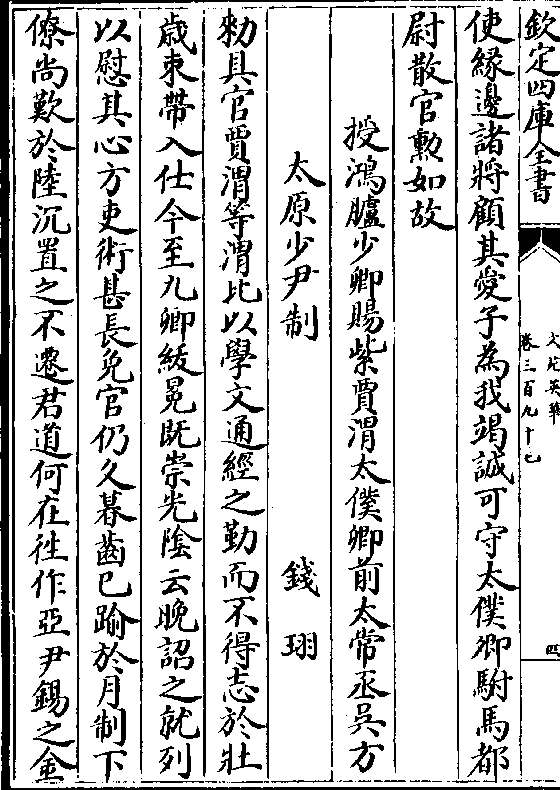 欽定四庫全書
文苑英華
卷三百九十七
四
使縁邊諸將顧其愛子為我竭誠可守太僕卿駙馬都
尉散官勲如故
授鴻臚少卿賜紫賈渭太僕卿前太常丞吳方
太原少尹制
錢珝
勑具官賈渭等渭比以學文通經之勤而不得志於壯
歳束帶入仕今至九卿紱冕既崇光隂云晩詔之就列
以慰其心方吏術甚長免官仍久暮齒已踰於月制下
僚尚歎於陸沉置之不遷君道何在徃作亞尹錫之金